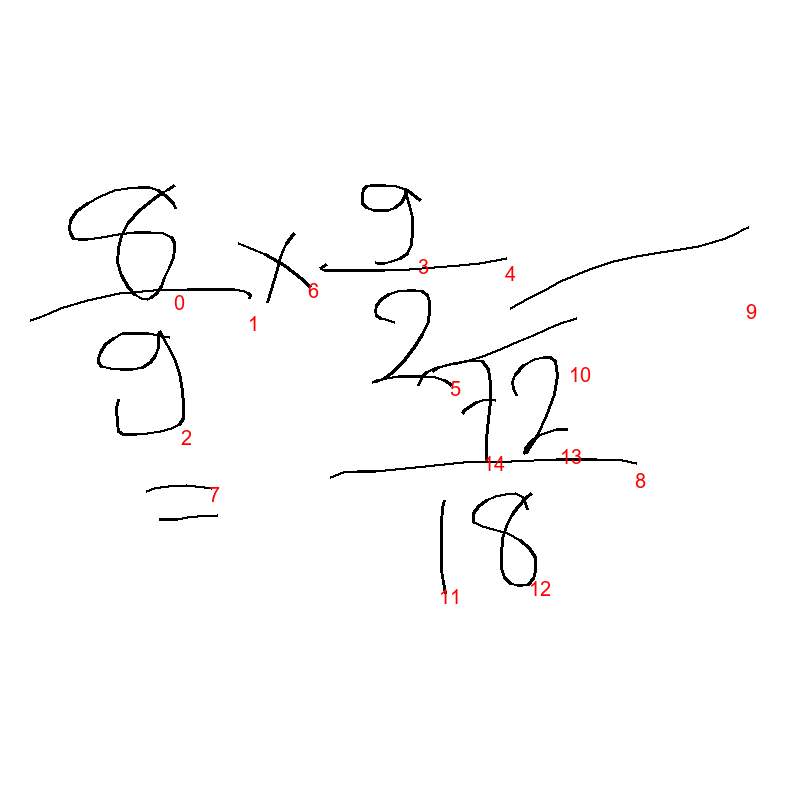 8/9 × 9/2
= 72/18
0 1 2 3 4 5 6 7 8 9 10 11 12 13 14